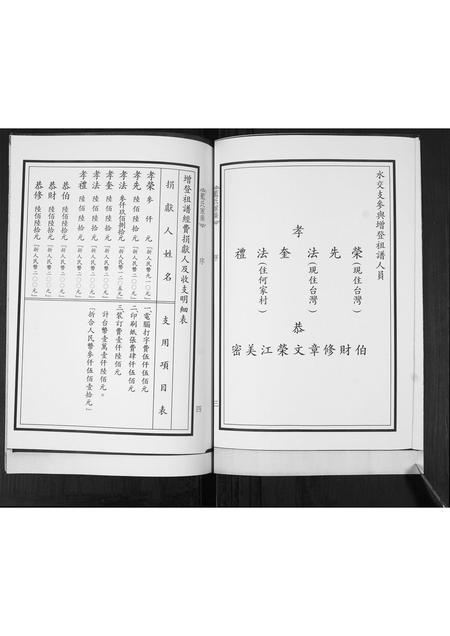 水交支參與增登祖譜人員
孝
榮(現住台灣)
先
法(現住台灣)
奎
法(住何家村)
禮
恭
伯財修章文榮江美密
序
三
增登祖譜經費捐獻人及收支明細表
捐獻人姓名
孝榮 參仟元
孝先 陸佰陸拾元
孝法 參仟玖佰捌拾元
孝奎 陸佰陸拾元
孝法 陸佰陸拾元
孝禮 陸佰陸拾元
恭伯 陸佰陸拾元『折人民幣二〇〇元』
恭財 陸佰陸拾元『折人民幣二〇〇元』
恭修 陸佰陸拾元『折人民幣二〇〇元』
支用項目表
一、電腦打字費伍仟伍佰元
二、印刷紙張費肆仟伍佰元
三、裝訂費壹仟陸佰元
計台幣壹萬壹仟陸佰元。
『折合人民幣參仟伍佰壹拾元』
序
四